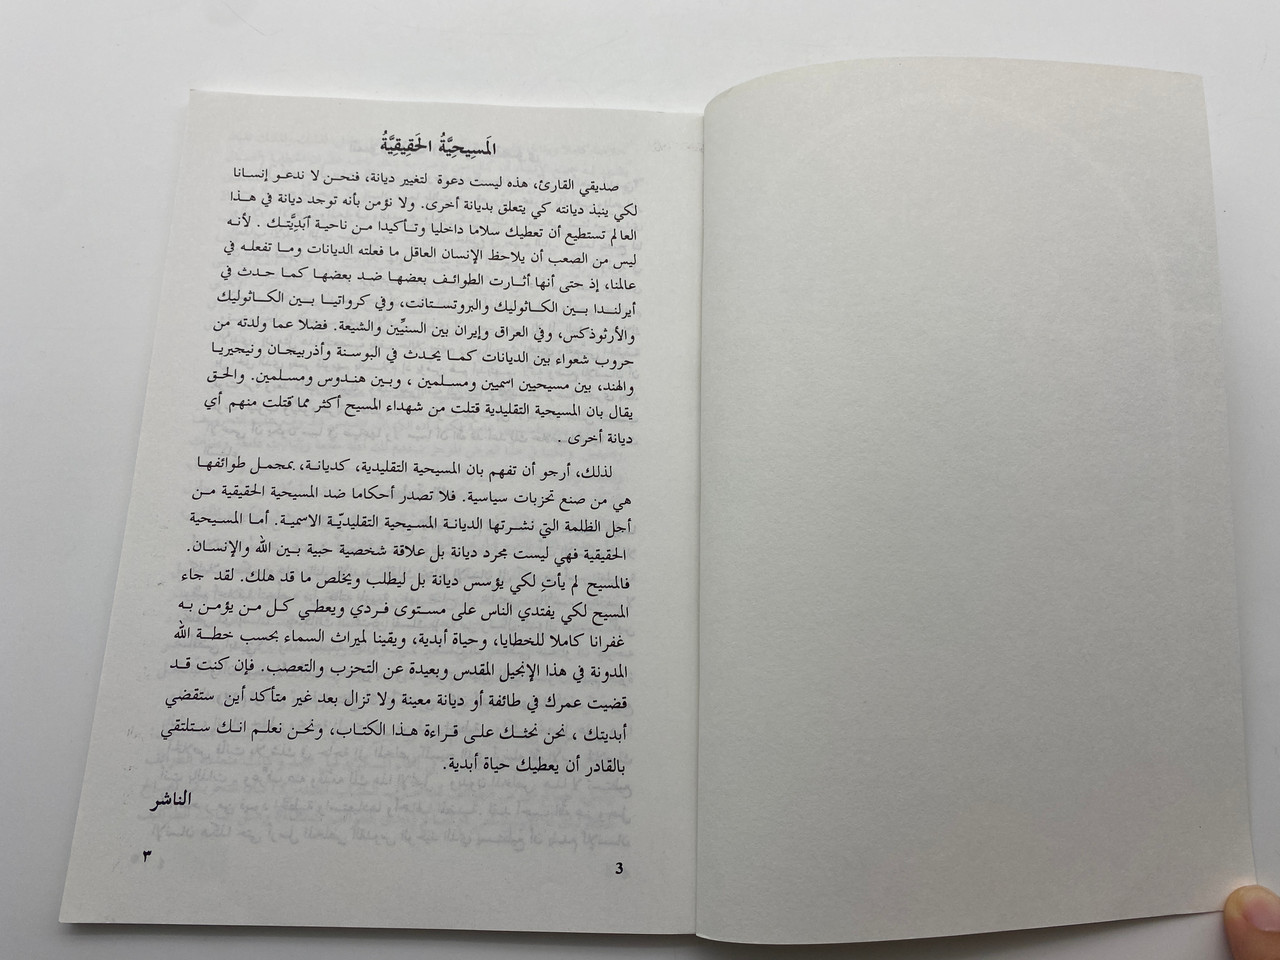 المَسِيحِيَّةُ الحَقِيقِيَّةُ
صديقي القارئ، هذه ليست دعوة لتغيير ديانة، فنحن لا ندعو إنسانا
لكي ينبذ ديانته كي يتعلق بديانة أخرى. ولا نؤمن بأنه توجد ديانة في هذا
العالم تستطيع أن تعطيك سلاما داخليا وتأكيدا من ناحية أبَدِيَّتِك . لأنه
ليس من الصعب أن يلاحظ الإنسان العاقل ما فعلته الديانات وما تفعله في
عالمنا، إذ حتى أنها أثارت الطوائف بعضها ضد بعضها كما حدث في
أيرلندا بين الكاثوليك والبروتستانت، وفي كرواتيا بين الكاثوليك
والأرثوذكس، وفي العراق وإيران بين السنيِّين والشيعة. فضلا عما ولدته من
حروب شعواء بين الديانات كما يحدث في البوسنة وأذربيجان ونيجيريا
والهند، بين مسيحيين اسميين ومسلمين ، وبين هندوس ومسلمين. والحق
يقال بان المسيحية التقليدية قتلت من شهداء المسيح أكثر مما قتلت منهم أي
ديانة أخرى .
لذلك، أرجو أن تفهم بان المسيحية التقليدية، كديانة، بمجمل طوائفها
هي من صنع تحزبات سياسية. فلا تصدر أحكاما ضد المسيحية الحقيقية من
أجل الظلمة التي نشرتها الديانة المسيحية التقليديّة الاسمية. أما المسيحية
الحقيقية فهي ليست مجرد ديانة بل علاقة شخصية حبية بين الله والإنسان.
فالمسيح لم يأتِ لكي يؤسس ديانة بل ليطلب ويخلص ما قد هلك. لقد جاء
المسيح لكي يفتدي الناس على مستوى فردي ويعطي كل من يؤمن به
غفرانا كاملا للخطايا، وحياة أبدية، ويقينا لميراث السماء بحسب خطة الله
المدونة في هذا الإنجيل المقدس وبعيدة عن التحزب والتعصب. فإن كنت قد
قضيت عمرك في طائفة أو ديانة معينة ولا تزال بعد غير متأكد أين ستقضي
أبديتك ، نحن نحثك على قراءة هذا الكتاب، ونحن نعلم انك ستلتقي
بالقادر أن يعطيك حياة أبدية.
الناشر
٣
3